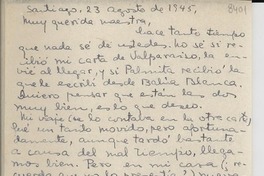 Santiago, 23 agosto de 1945,
8401
Muy querida maestra,
hace tanto tiempo
que nada sé de ustedes. No sé si re-
cibió mi carta de Valparaíso, la en-
vié al llegar, y si Palmita recibió la
que le escribí desde Bahía Blanca.
Quiero pensar que están las dos
muy bien, es lo que deseo.
Mi viaje (se lo contaba en la otra carta)
fué un tanto movido, pero afortuna-
damente, aunque tardó bastante
a causa del mal tiempo, llega-
mos bien. Pero en mi casa (¿re-